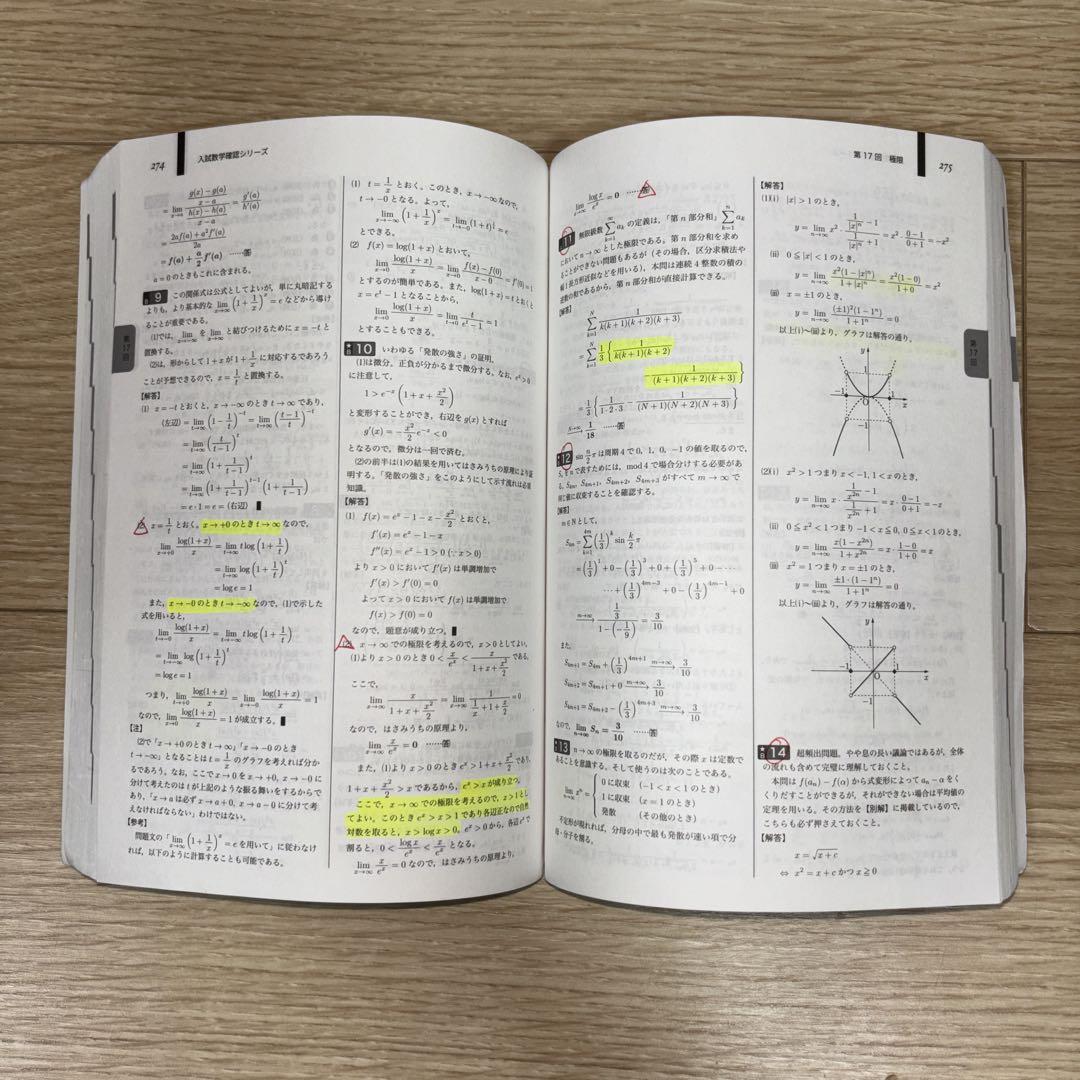 274
入試数学確認シリーズ
= lim_{x→a} \frac{\frac{g(x)-g(a)}{x-a}}{\frac{h(x)-h(a)}{x-a}} = \frac{g'(a)}{h'(a)}
= \frac{2af(a)+a^2f'(a)}{2a}
= f(a) + \frac{a}{2}f'(a) ……答
a = 0 のときもこれに含まれる。
9 この関係式は公式としてよいが、単に丸暗記する
よりも、より基本的な lim_{x→∞}(1+\frac{1}{x})^x = e などから導け
ることが重要である。
(1)では、lim_{x→-∞} を lim_{x→∞} と結びつけるために x = -t と
置換する。
(2)は、形からして 1+x が 1+\frac{1}{t} に対応するであろう
ことが予想できるので、x = \frac{1}{t} と置換する。
【解答】
(1) x = -t とおくと、x → -∞ のとき t → ∞ であり、
(左辺) = lim_{t→∞}(1-\frac{1}{t})^{-t} = lim_{t→∞}(\frac{t-1}{t})^{-t}
= lim_{t→∞}(\frac{t}{t-1})^t
= lim_{t→∞}(1+\frac{1}{t-1})^t
= lim_{t→∞}(1+\frac{1}{t-1})^{t-1}(1+\frac{1}{t-1})
= e・1 = e = (右辺) ∎
(2) x = \frac{1}{t} とおく。x → +0 のとき t → ∞ なので、
lim_{x→+0} \frac{log(1+x)}{x} = lim_{t→∞} t log(1+\frac{1}{t})
= lim_{t→∞} log(1+\frac{1}{t})^t
= log e = 1
また、x → -0 のとき t → -∞ なので、(1)で示した
式を用いると、
lim_{x→-0} \frac{log(1+x)}{x} = lim_{t→-∞} t log(1+\frac{1}{t})
= lim_{t→-∞} log(1+\frac{1}{t})^t
= log e = 1
つまり、lim_{x→+0} \frac{log(1+x)}{x} = lim_{x→-0} \frac{log(1+x)}{x} = 1
なので、lim_{x→0} \frac{log(1+x)}{x} = 1 が成立する。∎
【注】
(2)で「x → +0 のとき t → ∞」「x → -0 のとき
t → -∞」となることは t = \frac{1}{x} のグラフを考えれば分か
るであろう。なお、ここで x → 0 を x → +0, x → -0 に
分けて考えたのは t が上記のような振る舞いをするからで
あり、「x → a は必ず x → a+0, x → a-0 に分けて考え
なければならない」わけではない。
【参考】
問題文の「lim_{x→∞}(1+\frac{1}{x})^x = e を用いて」に従わなけ
れば、以下のように計算することも可能である。
第17回
(1) t = \frac{1}{x} とおく。このとき、x → -∞ なので、
t → -0 となる。よって、
lim_{x→-∞}(1+\frac{1}{x})^x = lim_{t→-0}(1+t)^{\frac{1}{t}} = e
とできる。
(2) f(x) = log(1+x) とおいて、
lim_{x→0} \frac{log(1+x)}{x} = lim_{x→0} \frac{f(x)-f(0)}{x-0}
とするのが簡単である。また、log(1+x) = t とおくと
x = e^t - 1 となることから、
lim_{x→0} \frac{log(1+x)}{x} = lim_{t→0} \frac{t}{e^t-1} = 1
とすることもできる。
10 いわゆる「発散の強さ」の証明。
(1)は微分。正負が分かるまで微分する。なお、e^x > 0
に注意して、
1 > e^{-x}(1+x+\frac{x^2}{2})
と変形することができ、右辺を g(x) とすれば
g'(x) = -\frac{x^2}{2}e^{-x} < 0
となるので、微分は一回で済む。
(2)の前半は(1)の結果を用いてはさみうちの原理により証
明する。「発散の強さ」をこのようにして示す流れは必須
知識。
【解答】
(1) f(x) = e^x - 1 - x - \frac{x^2}{2} とおくと、
f'(x) = e^x - 1 - x
f''(x) = e^x - 1 > 0 (∵ x > 0)
より x > 0 において f'(x) は単調増加で
f'(x) > f'(0) = 0
よって x > 0 において f(x) は単調増加で
f(x) > f(0) = 0
なので、題意が成り立つ。∎
(2) x → ∞ での極限を考えるので、x > 0 としてよい。
(1)より x > 0 のとき 0 < \frac{x}{e^x} < \frac{x}{1+x+\frac{x^2}{2}} である。
ここで、
lim_{x→∞} \frac{x}{1+x+\frac{x^2}{2}} = lim_{x→∞} \frac{1}{\frac{1}{x}+1+\frac{x}{2}} = 0
なので、はさみうちの原理より、
lim_{x→∞} \frac{x}{e^x} = 0 ……答
また、(1)より x > 0 のとき e^x > 1+x+\frac{x^2}{2} であり、
1+x+\frac{x^2}{2} > x であるから、e^x > x が成り立つ。
ここで、x → ∞ での極限を考えるので、x > 1 とし
てよい。このとき e^x > x > 1 であり各辺正なので自然
対数を取ると、x > log x > 0。e^x > 0 から、各辺 e^x で
割ると、0 < \frac{log x}{e^x} < \frac{x}{e^x} となる。
lim_{x→∞} \frac{x}{e^x} = 0 なので、はさみうちの原理より、
第17回 極限
275
lim_{x→∞} \frac{log x}{e^x} = 0 ……答
11 無限級数 \sum_{k=1}^{∞} a_k の定義は、「第 n 部分和」\sum_{k=1}^{n} a_k
において n → ∞ とした極限である。第 n 部分和を求め
ることができない問題もあるが(その場合、区分求積法や
幅1長方形近似などを用いる)、本問は連続4整数の積の
逆数の和であるから、第 n 部分和が直接計算できる。
【解答】
\sum_{k=1}^{N} \frac{1}{k(k+1)(k+2)(k+3)}
= \sum_{k=1}^{N} \frac{1}{3}{\frac{1}{k(k+1)(k+2)}
- \frac{1}{(k+1)(k+2)(k+3)}}
= \frac{1}{3}{\frac{1}{1・2・3} - \frac{1}{(N+1)(N+2)(N+3)}}
\xrightarrow{N→∞} \frac{1}{18} ……答
12 sin\frac{n}{2}π は周期 4 で 0, 1, 0, -1 の値を取るので、
S_n を n で表すためには、mod 4 で場合分けする必要があ
る。S_{4m}, S_{4m+1}, S_{4m+2}, S_{4m+3} がすべて m → ∞ で
同じ値に収束することを確認する。
【解答】
m ∈ N として、
S_{4m} = \sum_{k=1}^{4m}(\frac{1}{3})^k sin\frac{k}{2}π
= (\frac{1}{3})^1 + 0 - (\frac{1}{3})^3 + 0 + (\frac{1}{3})^5 + 0 - …
… + (\frac{1}{3})^{4m-3} + 0 - (\frac{1}{3})^{4m-1} + 0
\xrightarrow{m→∞} \frac{\frac{1}{3}}{1-(-\frac{1}{9})} = \frac{3}{10}
また、
S_{4m+1} = S_{4m} + (\frac{1}{3})^{4m+1} \xrightarrow{m→∞} \frac{3}{10}
S_{4m+2} = S_{4m+1} + 0 \xrightarrow{m→∞} \frac{3}{10}
S_{4m+3} = S_{4m+2} - (\frac{1}{3})^{4m+3} \xrightarrow{m→∞} \frac{3}{10}
なので、lim_{n→∞} S_n = \frac{3}{10} ……答
13 n → ∞ の極限を取るのだが、その際 x は定数で
あることを意識する。そして使うのは次のことである。
lim_{n→∞} x^n = { 0 に収束 (-1 < x < 1 のとき)
1 に収束 (x = 1 のとき)
発散 (その他のとき)
不定形が現れれば、分母の中で最も発散が速い項で分
母・分子を割る。
【解答】
(1)(i) |x| > 1 のとき、
y = lim_{n→∞} x^2・\frac{\frac{1}{|x|^n}-1}{\frac{1}{|x|^n}+1} = x^2・\frac{0-1}{0+1} = -x^2
(ii) 0 ≦ |x| < 1 のとき、
y = lim_{n→∞} \frac{x^2(1-|x|^n)}{1+|x|^n} = \frac{x^2(1-0)}{1+0} = x^2
(iii) x = ±1 のとき、
y = lim_{n→∞} \frac{(±1)^2(1-1^n)}{1+1^n} = 0
以上(i)～(iii)より、グラフは解答の通り。
y
-1
O
1
x
(2)(i) x^2 > 1 つまり x < -1, 1 < x のとき、
y = lim_{n→∞} x・\frac{\frac{1}{x^{2n}}-1}{\frac{1}{x^{2n}}+1} = x・\frac{0-1}{0+1} = -x
(ii) 0 ≦ x^2 < 1 つまり -1 < x ≦ 0, 0 ≦ x < 1 のとき、
y = lim_{n→∞} \frac{x(1-x^{2n})}{1+x^{2n}} = x・\frac{1-0}{1+0} = x
(iii) x^2 = 1 つまり x = ±1 のとき、
y = lim_{n→∞} \frac{±1・(1-1^n)}{1+1^n} = 0
以上(i)～(iii)より、グラフは解答の通り。
y
-1
O
1
x
14 超頻出問題。やや息の長い議論ではあるが、全体
の流れも含めて完璧に理解しておくこと。
本問は f(a_n) - f(α) から式変形によって a_n - α をく
くりだすことができるが、それができない場合は平均値の
定理を用いる。その方法を【別解】に掲載しているので、
こちらも必ず押さえておくこと。
【解答】
x = \sqrt{x+c}
⇔ x^2 = x + c かつ x ≧ 0
第17回